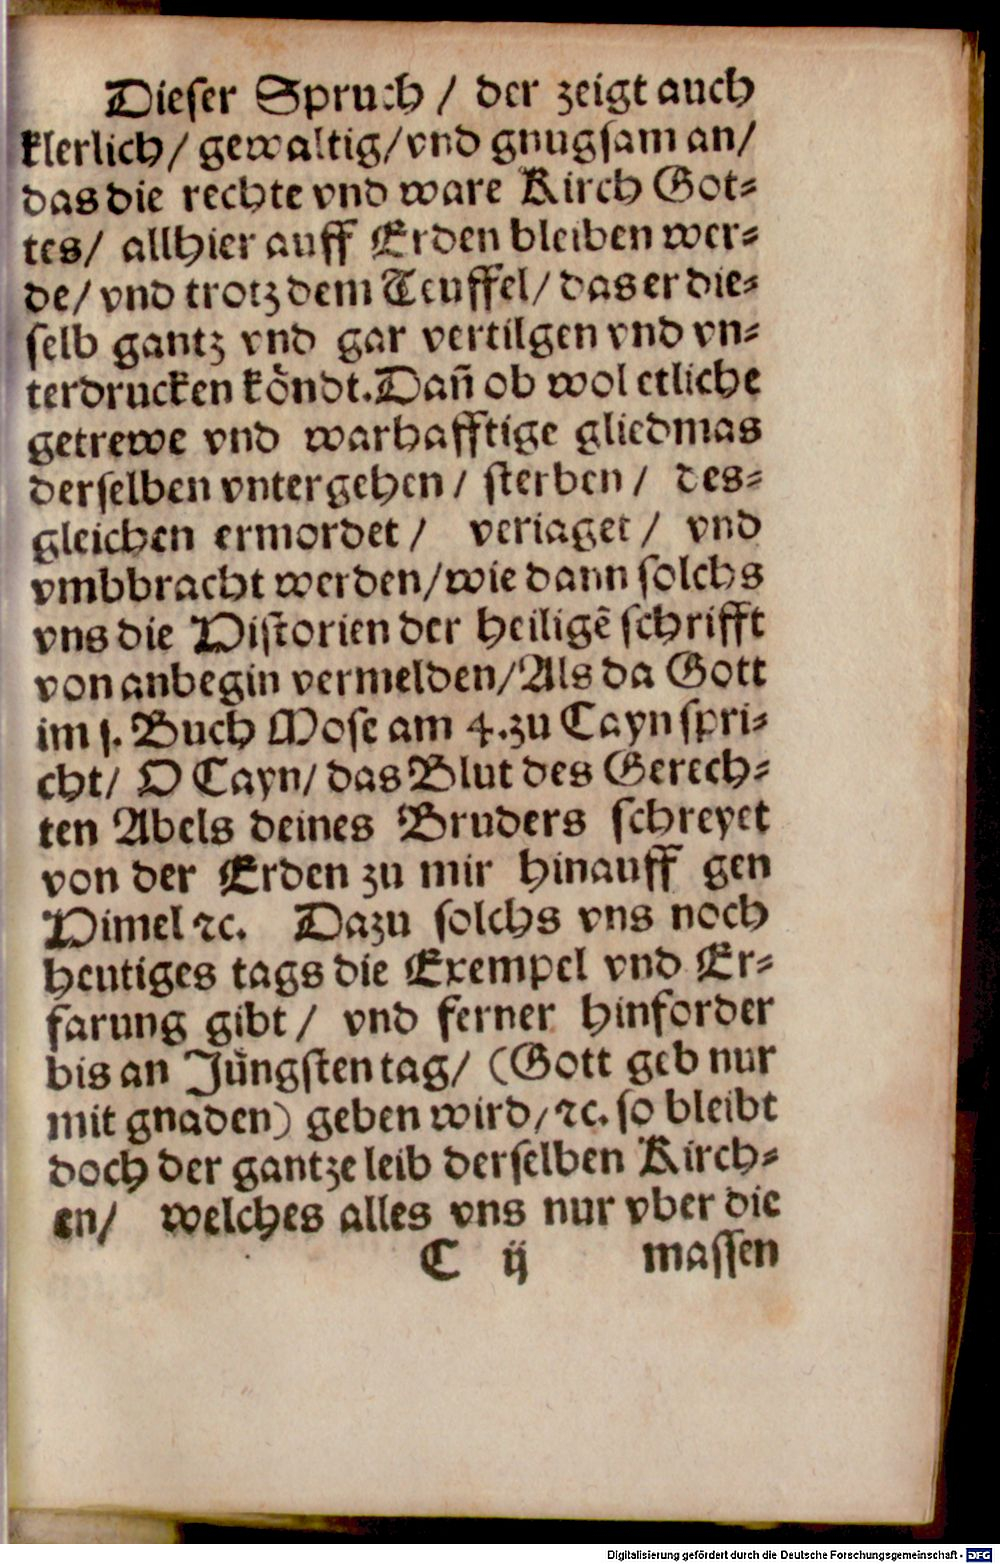 Dieser Spruch / der zeigt auch
klerlich / gewaltig / vnd gnugsam an /
das die rechte vnd ware Kirch Got⸗
tes / allhier auff Erden bleiben wer⸗
de / vnd trotz dem Teuffel / das er die⸗
selb gantz vnd gar vertilgen vnd vn⸗
terdrucken köndt. Dañ ob wol etliche
getrewe vnd warhafftige gliedmas
derselben vntergehen / sterben / des⸗
gleichen ermordet / veriaget / vnd
vmbbracht werden / wie dann solchs
vns die Historien der heiligẽ schrifft
von anbegin vermelden / Als da Gott
im 1. Buch Mose am 4. zu Cayn spri⸗
cht / O Cayn / das Blut des Gerech⸗
ten Abels deines Bruders schreyet
von der Erden zu mir hinauff gen
Himel ꝛc. Dazu solchs vns noch
heutiges tags die Exempel vnd Er⸗
farung gibt / vnd ferner hinforder
bis an Jüngsten tag / (Gott geb nur
mit gnaden) geben wird / ꝛc. so bleibt
doch der gantze leib derselben Kirch⸗
en / welches alles vns nur vber die
C ij massen
Digitalisierung gefördert durch die Deutsche Forschungsgemeinschaft - DFG